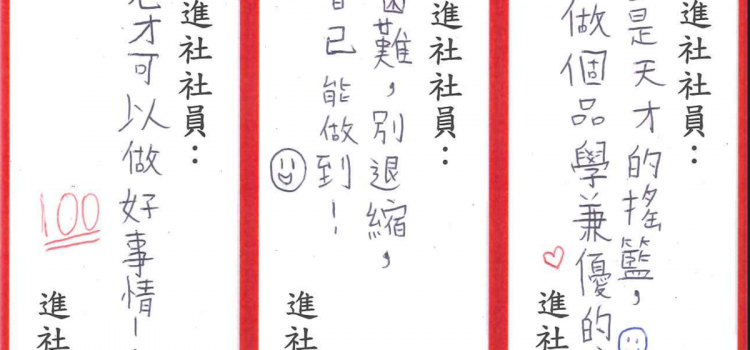 進社社員：
是天才的搖籃，
做個品學兼優的
進社
進社社員：
難，別退縮，
己能做到！
進社
進社社員：
才可以做好事情！
100
進社